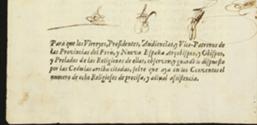 Para que los Virreyes, Presidentes, Audiencias, y Vice-Patronos de
las Provincias del Perù, y Nueva España, Arçobispos, y Obispos,
y Prelados de las Religiones de ellas, observen, y guarden lo dispuesto
por las Cedulas arriba citadas, sobre que aya en los Conventos el
numero de ocho Religiosos de precisa, y actual assistencia.